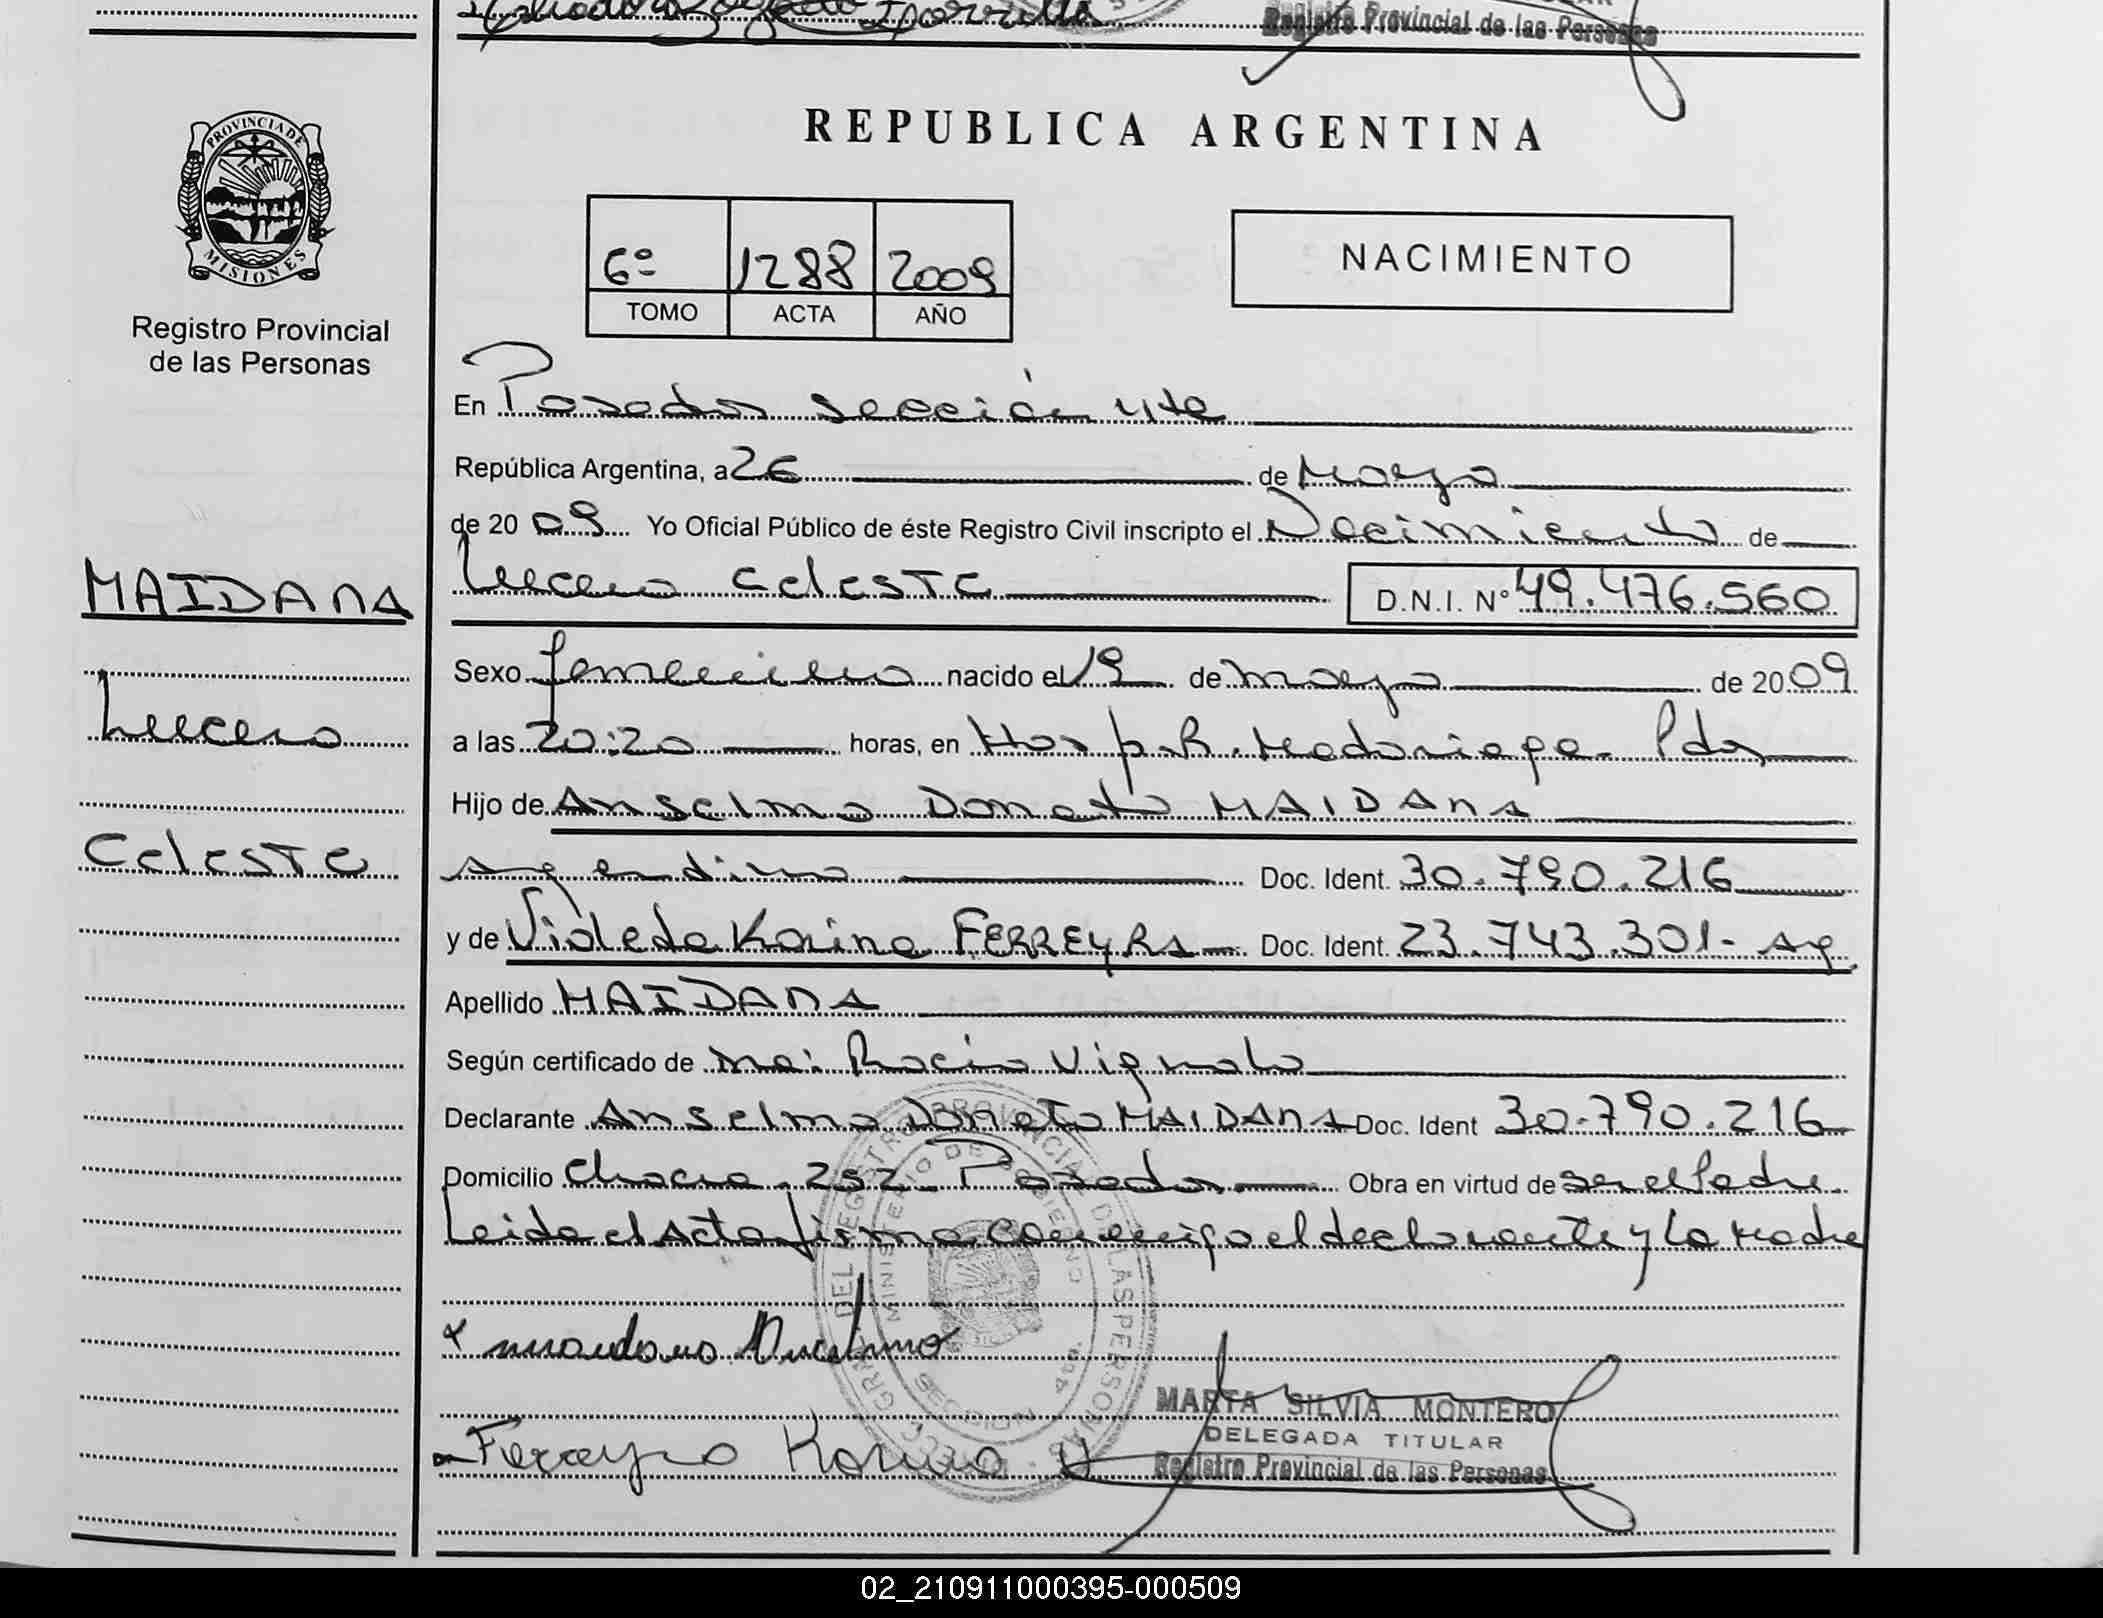 Registro Provincial de las Personas
PROVINCIA DE
MISIONES
Registro Provincial
de las Personas
MAIDANA
Lucero
Celeste
REPUBLICA ARGENTINA
6º 1288 2009
TOMO ACTA AÑO
NACIMIENTO
En Posadas sección 4ta
República Argentina, a 26 de Mayo
de 20 09 Yo Oficial Público de éste Registro Civil inscripto el Nacimiento de
Lucero Celeste D.N.I. Nº 49.476.560
Sexo femenino nacido el 19 de mayo de 20 09
a las 20:20 horas, en Hosp. R. Madariaga - Pdas
Hijo de Anselmo Donato MAIDANA
argentino Doc. Ident. 30.790.216
y de Violeta Karina FERREYRA Doc. Ident. 23.743.301 - arg.
Apellido MAIDANA
Según certificado de Rocío Vignolo
Declarante Anselmo Donato MAIDANA Doc. Ident 30.790.216
Domicilio Chacra 252 - Posadas Obra en virtud de ser el Padre
Leida el Acta firma conmigo el declarante y la Madre
Ferreyra Karina
MARTA SILVIA MONTERO
DELEGADA TITULAR
Registro Provincial de las Personas
02_210911000395-000509